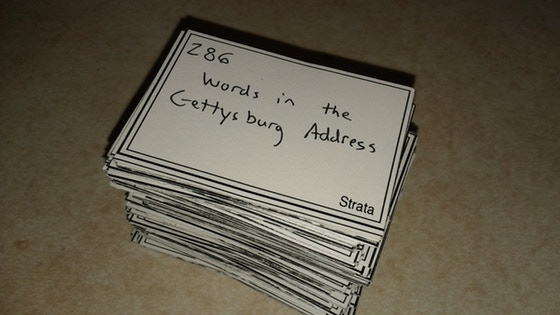 286
Words in the
Gettysburg Address
Strata